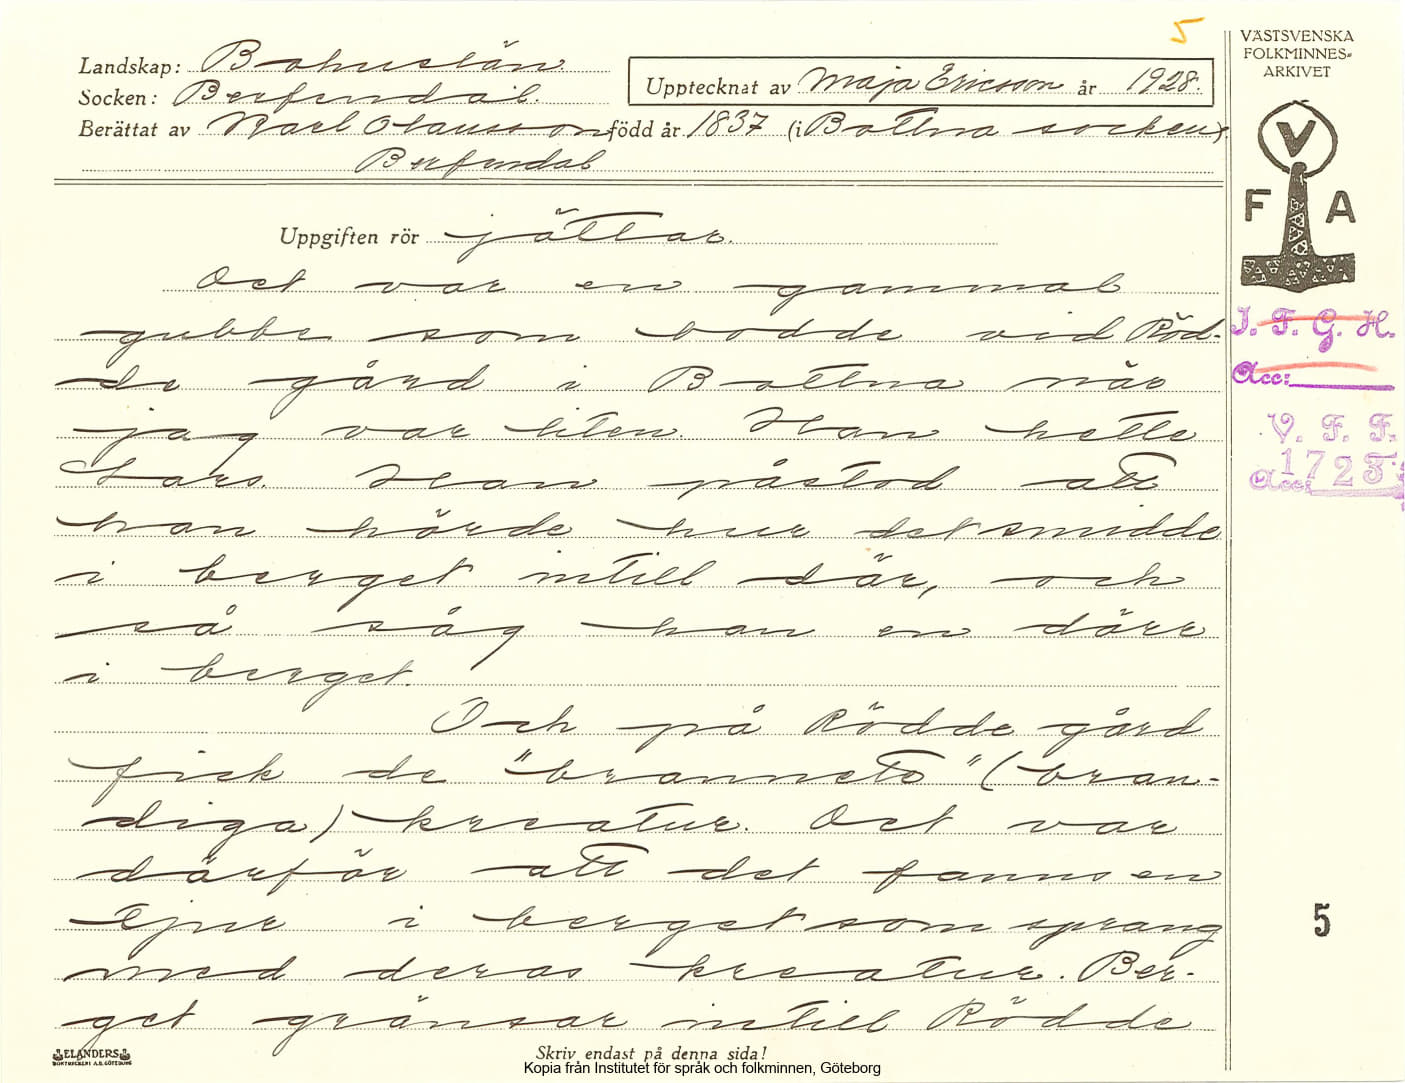 5
VÄSTSVENSKA
FOLKMINNES-
ARKIVET
Landskap: Bohuslän
Socken: Berfendal.
Upptecknat av Maja Ericsson år 1928.
Berättat av Karl Olausson född år 1837 (i Bottna socken).
Berfendal
V
F A
Uppgiften rör jättar.
Det var en gammal
gubbe som bodde vid Röd-
de gård i Bottna når
jag var liten. Han hette
Lars. Han påstod att
han hörde hur det smidde
i berget intill där, och
så såg han en dörr
i berget.
Och på Rödde gård
fick de "brannete" (bran-
diga) kreatur. Det var
därför att det fanns en
tjur i berget som sprang
med deras kreatur. Ber-
get gränsar intill Rödde
I. F. G. H.
Acc:
V. F. F.
Acc: 1723
5
ELANDERS
BOKTRYCKERI A.B. GÖTEBORG
Skriv endast på denna sida!
Kopia från Institutet för språk och folkminnen, Göteborg